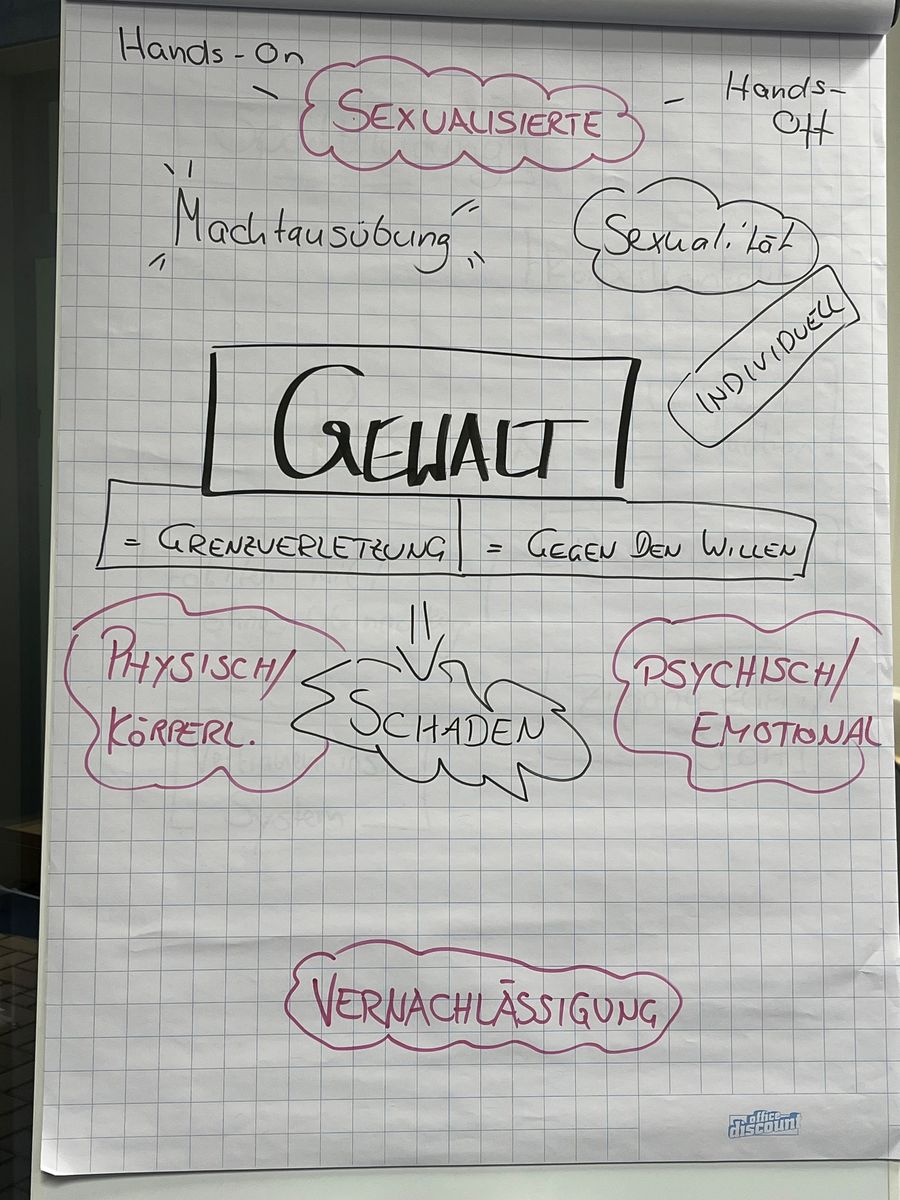 Hands-On
SEXUALISIERTE
Hands-
Off
Machtausübung
Sexualität
INDIVIDUELL
GEWALT
= GRENZVERLETZUNG
= GEGEN DEN WILLEN
PHYSISCH/
KÖRPERL.
SCHADEN
PSYCHISCH/
EMOTIONAL
VERNACHLÄSSIGUNG
office
discount